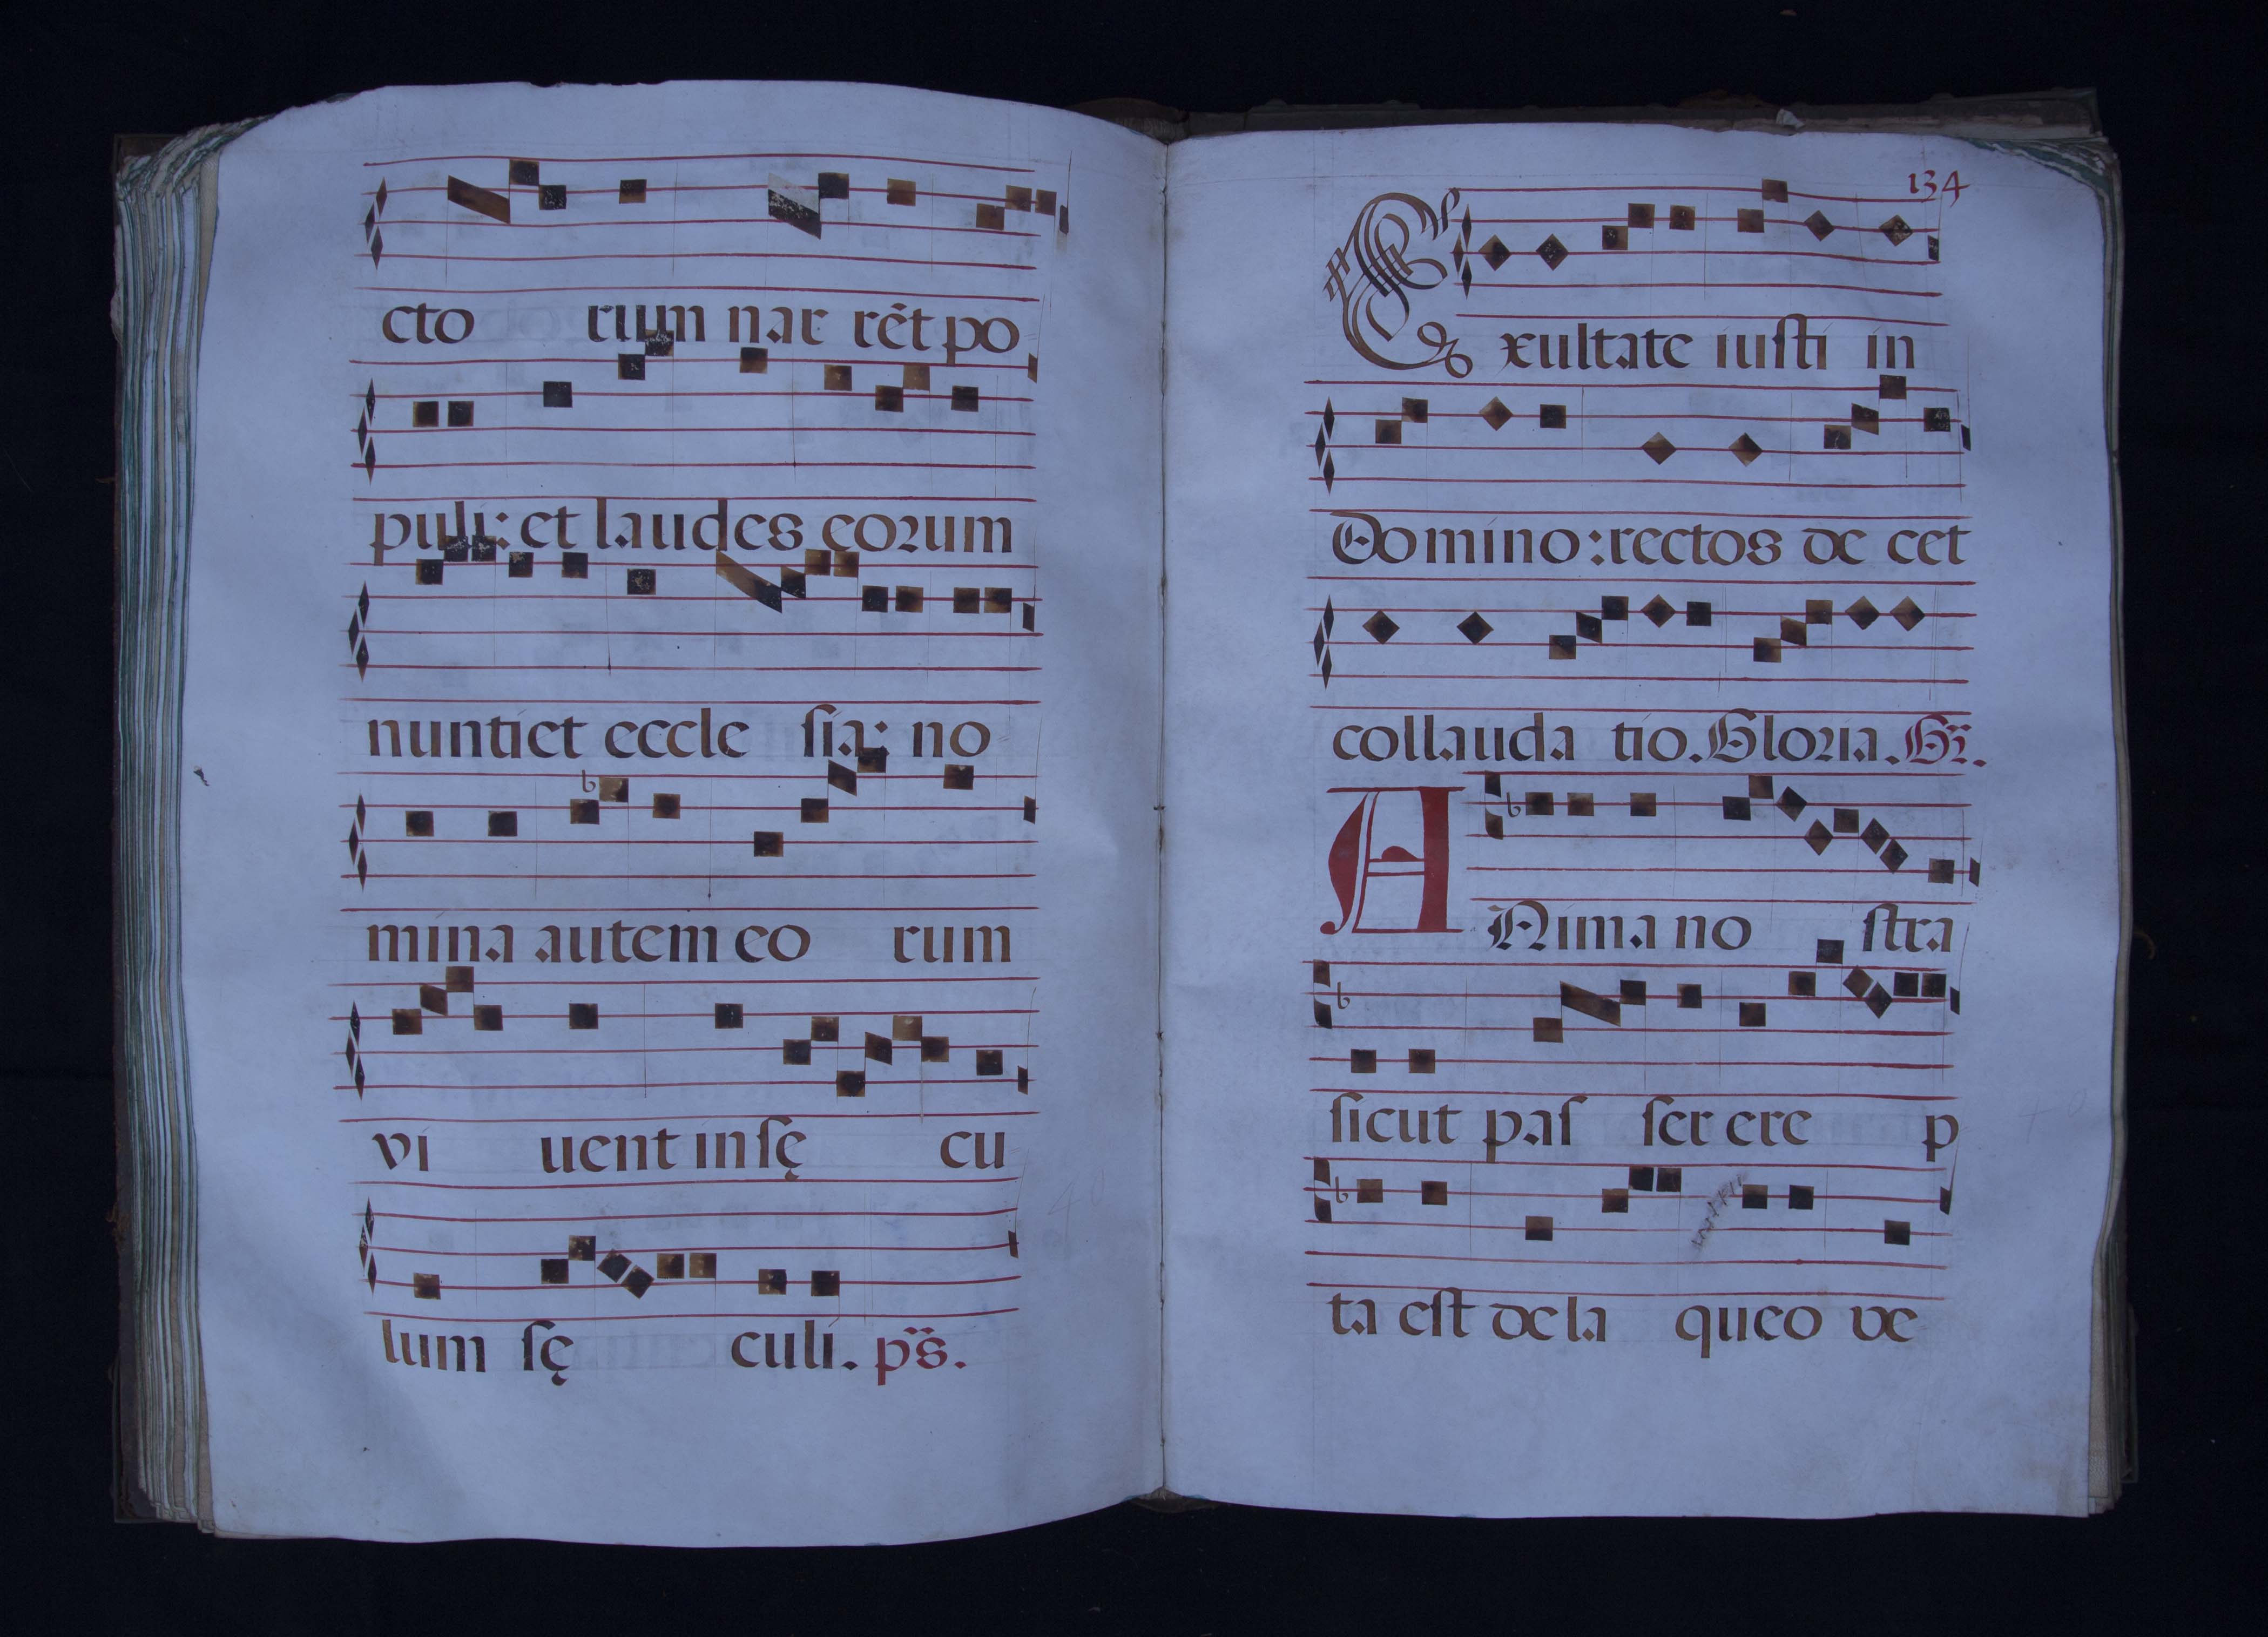 cto rum nar rēt po
puli: et laudes eorum
nuntiet eccle sia: no
mina autem eo rum
vi uent in sę cu
lum sę culi. ps.
134
Exultate iusti in
Domino: rectos de cet
collauda tio. Gloria. Gr.
ANima no stra
sicut pas ser ere p
ta est de la queo ve